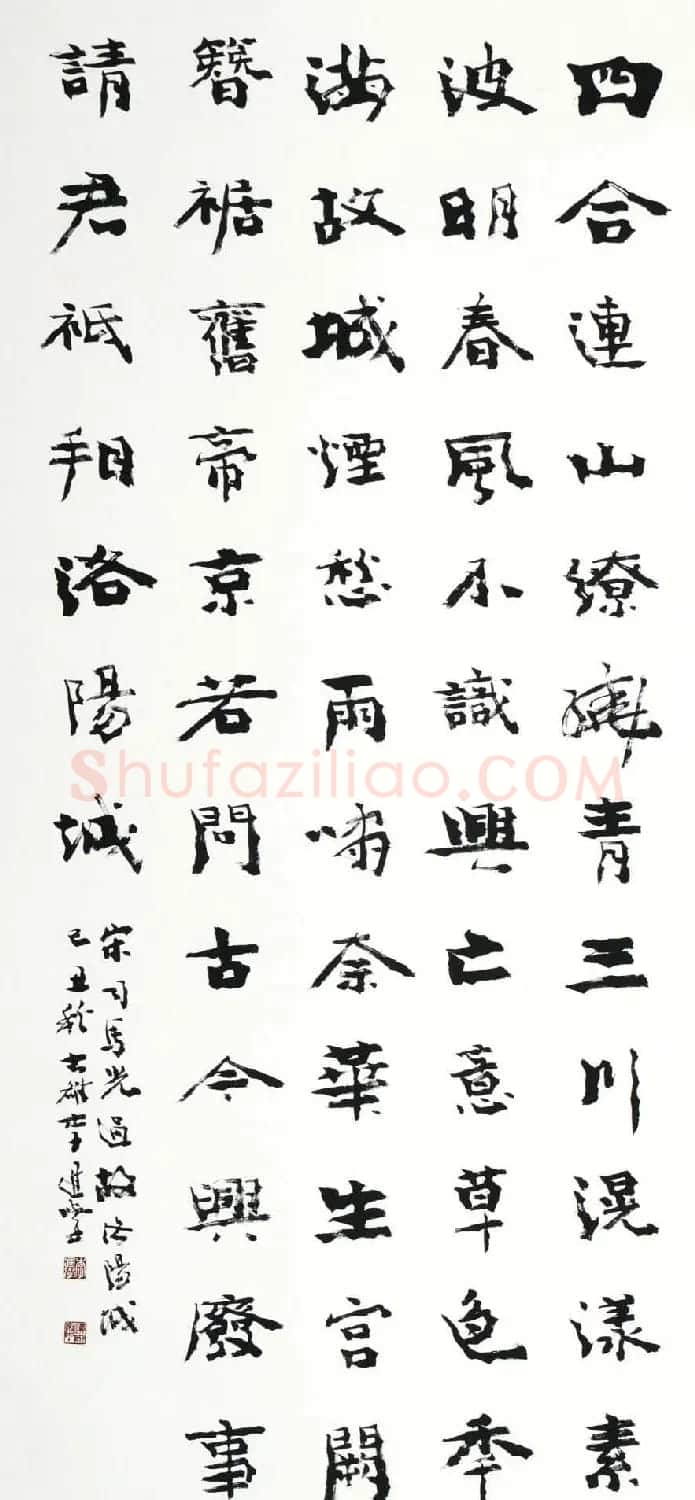 四合連山繚繞青三川滉漾素
波明春風不識興亡意草色年
滿故城煙愁雨嘯奈華生宮闕
簪裾舊帝京若問古今興廢事
請君祇看洛陽城
宋司馬光過故洛陽城
己丑秋古雄李進學
Shufaziliao.COM